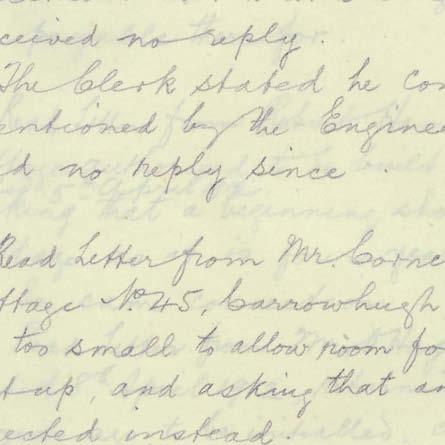 ceived no reply.
The Clerk stated he con
entioned by the Enginee
d no reply since.
Read Letter from Mr. Corne
ttage No. 45, Carrowhugh
too small to allow room fo
t up, and asking that an
ected instead.